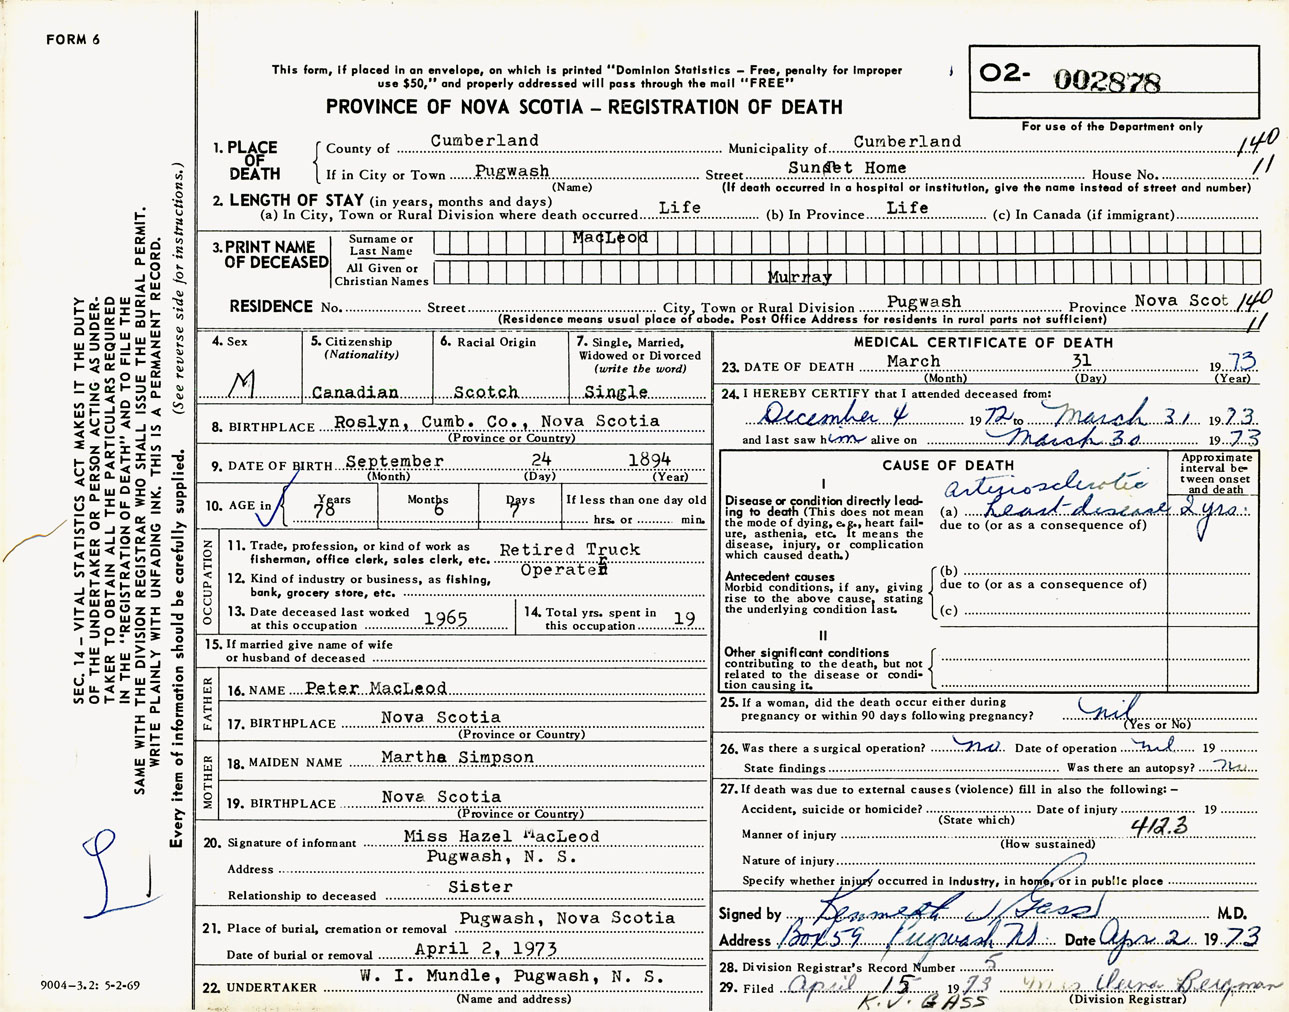 FORM 6
This form, if placed in an envelope, on which is printed "Dominion Statistics – Free, penalty for improper
use $50," and properly addressed will pass through the mail "FREE"
PROVINCE OF NOVA SCOTIA – REGISTRATION OF DEATH
O2- 002878
For use of the Department only
1. PLACE OF DEATH
County of Cumberland Municipality of Cumberland 140
If in City or Town Pugwash Street Sunset Home House No. 11
(Name) (If death occurred in a hospital or institution, give the name instead of street and number)
2. LENGTH OF STAY (in years, months and days)
(a) In City, Town or Rural Division where death occurred Life (b) In Province Life (c) In Canada (if immigrant)
3. PRINT NAME OF DECEASED
Surname or Last Name MacLeod
All Given or Christian Names Murray
RESIDENCE No. Street City, Town or Rural Division Pugwash Province Nova Scot 140
(Residence means usual place of abode. Post Office Address for residents in rural parts not sufficient) 11
4. Sex
M
5. Citizenship
(Nationality)
Canadian
6. Racial Origin
Scotch
7. Single, Married,
Widowed or Divorced
(write the word)
Single
8. BIRTHPLACE Roslyn, Cumb. Co., Nova Scotia
(Province or Country)
9. DATE OF BIRTH September 24 1894
(Month) (Day) (Year)
10. AGE in Years 78 Months 6 Days 7 If less than one day old
hrs. or min.
OCCUPATION
11. Trade, profession, or kind of work as
fisherman, office clerk, sales clerk, etc. Retired Truck
Operater
12. Kind of industry or business, as fishing,
bank, grocery store, etc.
13. Date deceased last worked
at this occupation 1965
14. Total yrs. spent in
this occupation 19
15. If married give name of wife
or husband of deceased
FATHER
16. NAME Peter MacLeod
17. BIRTHPLACE Nova Scotia
(Province or Country)
MOTHER
18. MAIDEN NAME Martha Simpson
19. BIRTHPLACE Nova Scotia
(Province or Country)
20. Signature of informant Miss Hazel MacLeod
Address Pugwash, N. S.
Relationship to deceased Sister
21. Place of burial, cremation or removal Pugwash, Nova Scotia
Date of burial or removal April 2, 1973
22. UNDERTAKER W. I. Mundle, Pugwash, N. S.
(Name and address)
MEDICAL CERTIFICATE OF DEATH
23. DATE OF DEATH March 31 1973
(Month) (Day) (Year)
24. I HEREBY CERTIFY that I attended deceased from:
December 4 1972 to March 31 1973
and last saw him alive on March 30 1973
CAUSE OF DEATH
Approximate
interval be-
tween onset
and death
I
Disease or condition directly lead-
ing to death (This does not mean
the mode of dying, e.g., heart fail-
ure, asthenia, etc. It means the
disease, injury, or complication
which caused death.)
arteriosclerotic
(a) heart disease 2 yrs.
due to (or as a consequence of)
Antecedent causes
Morbid conditions, if any, giving
rise to the above cause, stating
the underlying condition last.
(b)
due to (or as a consequence of)
(c)
II
Other significant conditions
contributing to the death, but not
related to the disease or condi-
tion causing it.
25. If a woman, did the death occur either during
pregnancy or within 90 days following pregnancy? nil
(Yes or No)
26. Was there a surgical operation? no Date of operation nil 19
State findings Was there an autopsy? no
27. If death was due to external causes (violence) fill in also the following: –
Accident, suicide or homicide? Date of injury 19
(State which)
412.3
Manner of injury
(How sustained)
Nature of injury
Specify whether injury occurred in Industry, in home, or in public place
Signed by Kenneth J Gass M.D.
Address Box 59 Pugwash NS. Date Apr 2 1973
28. Division Registrar's Record Number 5
29. Filed April 15 1973 Mrs Bergman
K.J. GASS (Division Registrar)
SEC. 14 – VITAL STATISTICS ACT MAKES IT THE DUTY
OF THE UNDERTAKER OR PERSON ACTING AS UNDER-
TAKER TO OBTAIN ALL THE PARTICULARS REQUIRED
IN THE "REGISTRATION OF DEATH" AND TO FILE THE
SAME WITH THE DIVISION REGISTRAR WHO SHALL ISSUE THE BURIAL PERMIT.
WRITE PLAINLY WITH UNFADING INK. THIS IS A PERMANENT RECORD.
Every item of information should be carefully supplied. (See reverse side for instructions.)
9004–3.2: 5-2-69